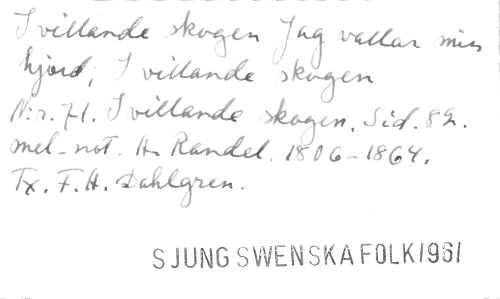 I villande skogen Jag vallar min
hjord, I villande skogen
N:r. 71. I villande skogen. Sid. 82.
mel-not. A. Randel. 1806-1864.
Tx. F. A. Dahlgren.
SJUNG SWENSKA FOLK 1961